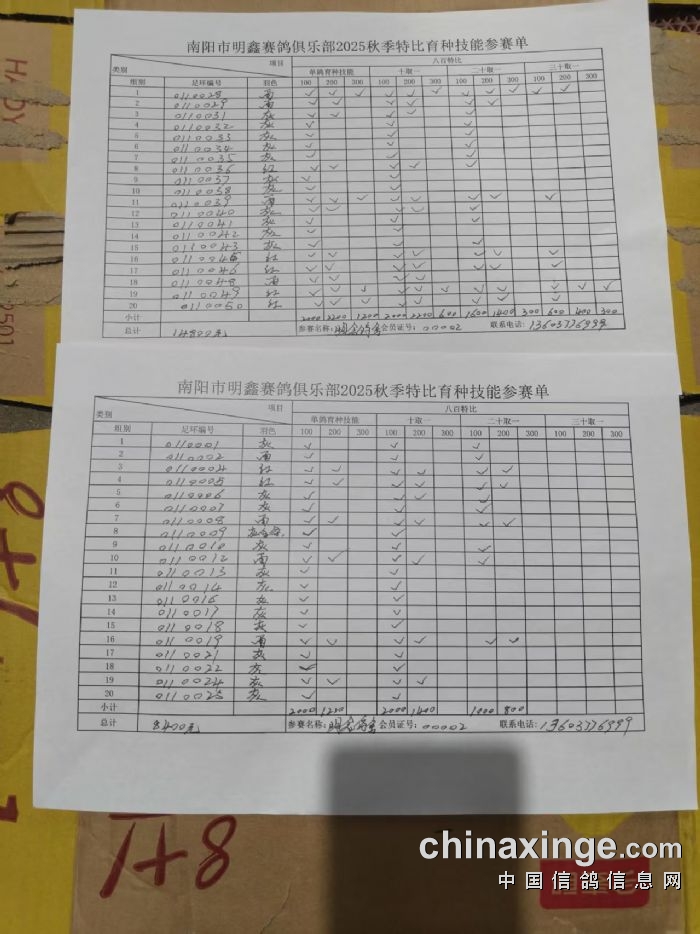 HADY
南阳市明鑫赛鸽俱乐部2025秋季特比育种技能参赛单
项目
类别
八百特比
组别 足环编号 羽色 单鸽育种技能 十取一 二十取一 三十取一
100 200 300 100 200 300 100 200 300 100 200 300
1 0110028 雨
2 0110029 雨
3 0110031 灰
4 0110032 灰
5 0110033 灰
6 0110034 灰
7 0110035 灰
8 0110036 红
9 0110037 灰
10 0110038 灰
11 0110039 雨
12 0110040 灰
13 0110041 灰
14 0110042 灰
15 0110043 灰
16 红
17 0110046 红
18 0110048 雨
19 0110049 红
20 0110050 红
小计 2000 2200 1200 2000 2200 600 1600 1400 300 600 400 300
总计 14800元 参赛名称: 会员证号: 00002 联系电话: 13603776999
南阳市明鑫赛鸽俱乐部2025秋季特比育种技能参赛单
项目
类别
八百特比
组别 足环编号 羽色 单鸽育种技能 十取一 二十取一 三十取一
100 200 300 100 200 300 100 200 300 100 200 300
1 0110001 灰
2 0110002 雨
3 0110004 红
4 0110005 红
5 0110006 灰
6 0110007 灰
7 0110008 雨
8 0110009
9 0110010 灰
10 0110012 雨
11 0110013 灰
12 0110014 灰
13 0110016 灰
14 0110017 灰
15 0110018 灰
16 0110019 雨
17 0110021 灰
18 0110022 灰
19 0110024 灰
20 0110025 灰
小计 2000 1200 2000 1400 1000 800
总计 8400元 参赛名称: 会员证号: 00002 联系电话: 13603776999
8+1
chinaxinge.com
中国信鸽信息网